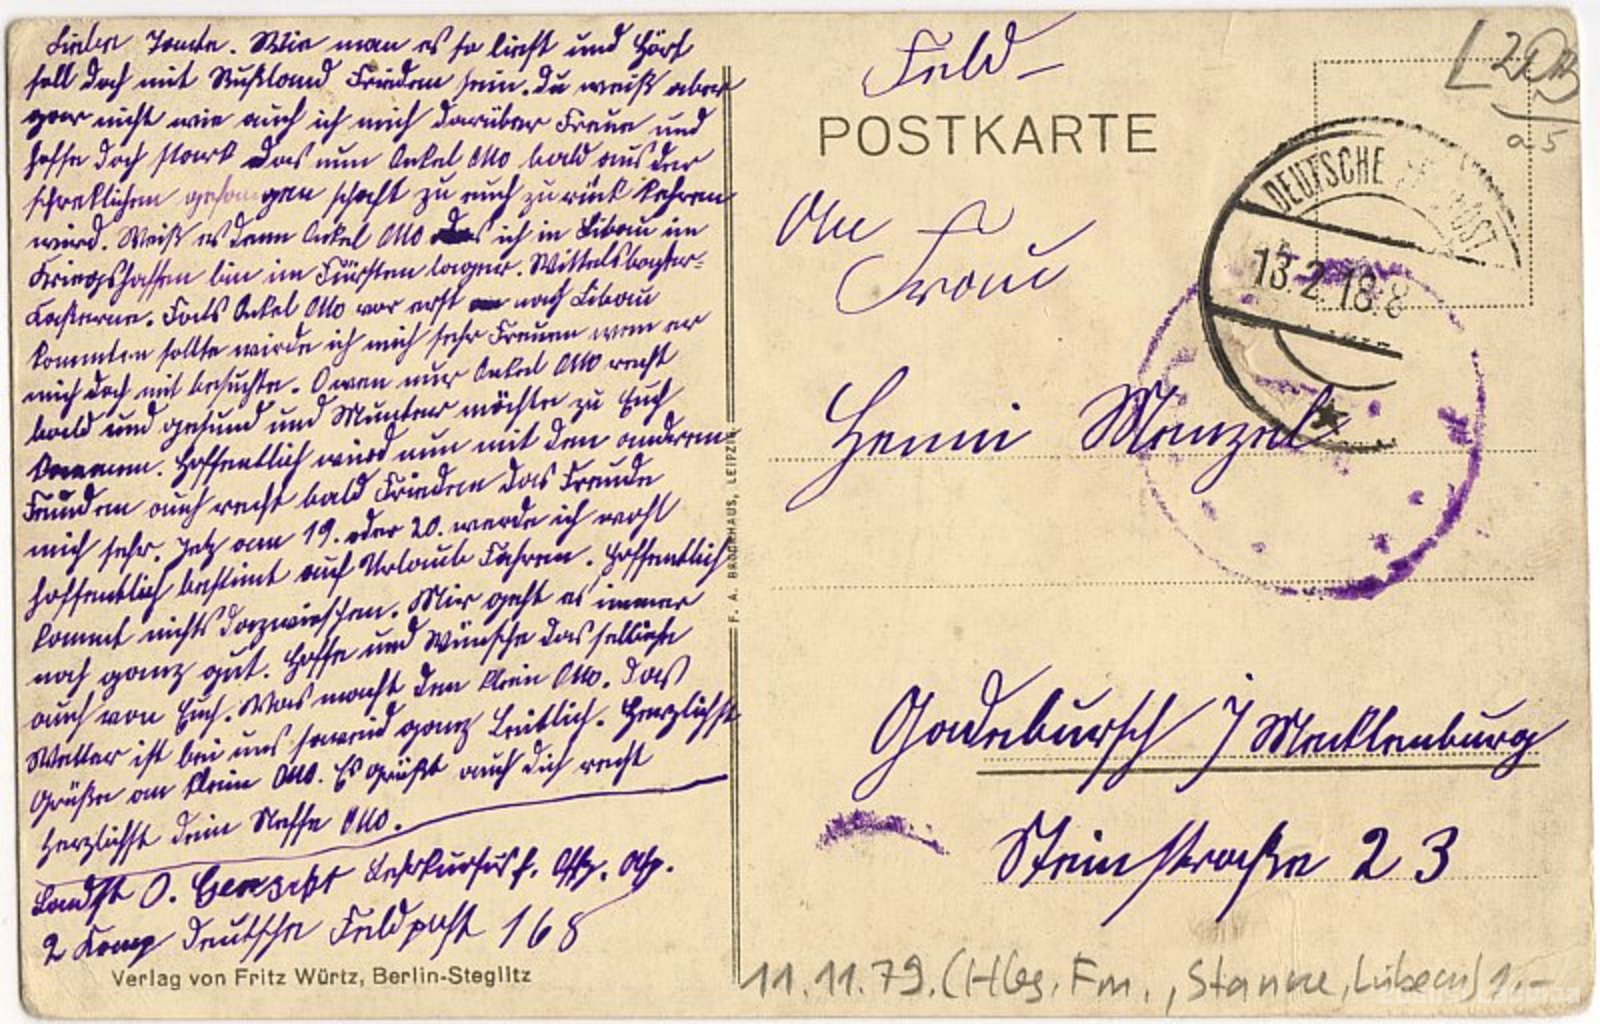 Liebe Tante. Wie man es so liest und Hört
soll doch mit Rußland Frieden sein. Du weiß aber
gar nicht wie auch ich mich darüber Freue und
hoffe doch stark das nun Onkel Otto bald aus der
schreklichen gefangen schaft zu euch zurück kehren
wird. Weiß es denn Onkel Otto das ich in Libau im
Kriegshaffen bin im Fürsten lager. Wittelsbacher-
Kaserne. Fals Onkel Otto vor erst nach Libau
kommten sollte würde ich mich sehr Freuen wen er
mich doch mit besuchte. O wen nur Onkel Otto recht
bald und gesund und Munter möchte zu Euch
kommen. Hoffentlich wird nun mit den anderen
Feinden auch recht bald Frieden das Freude
mich sehr. Jetz am 19. oder 20. werde ich wohl
hoffentlich bestimt auf Urlaub Fahren. Hoffentlich
kommt nichts dazwischen. Mir geht es immer
noch ganz gut. Hoffe und Wünsche das selbiche
auch von Euch. Was macht den klein Otto. Das
Wetter ist bei uns soweid ganz Leitlich. Herzlichst
Grüße an klein Otto. Es grüßt auch dich recht
herzlichst dein Neffe Otto.
Landst O. Lehrkursus f. Offz. Asp.
2 Komp Deutsche Feldpost 168
Verlag von Fritz Würtz, Berlin-Steglitz
F. A. BROCKHAUS, LEIPZIG
Feld-
POSTKARTE
DEUTSCHE FELDPOST
13.2.18.8
a5
An
Frau
Henni Menzel
Gadebursch i/Mecklenburg
Steinstraße 23
11.11.79. (Hbg. Fm., Stanke, Lübeck) 1.-